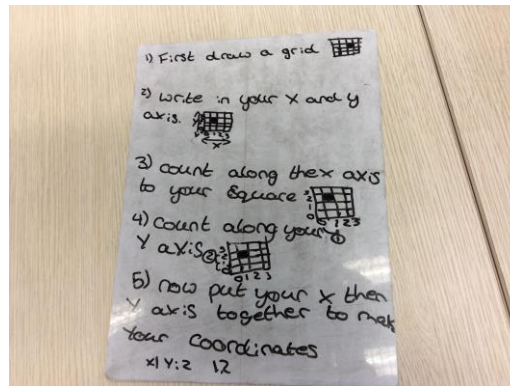 1) First draw a grid
2) write in your x and y
axis.
3) count along the x axis
to your square
4) Count along your
Y axis
5) now put your x then
Y axis together to mak
Your coordinates
x1 Y:2 12